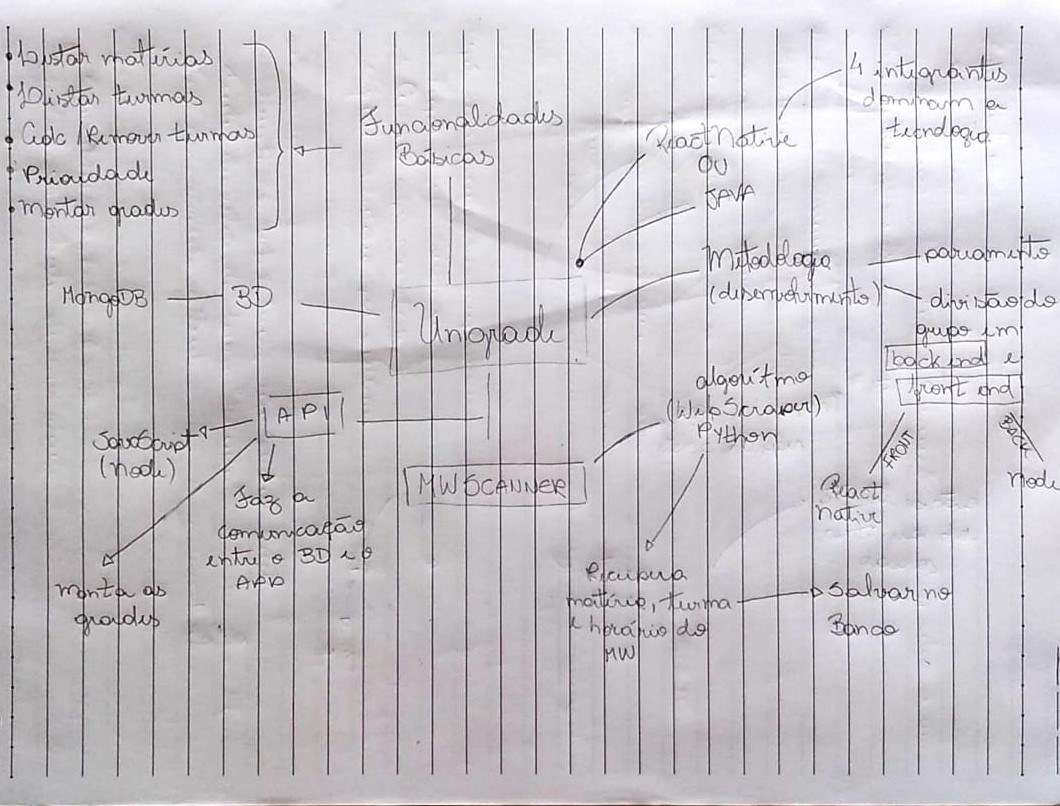 • Listar matérias
• Listar turmas
• Adc / Remover turmas
• Prioridade
• montar grades
Funcionalidades
Básicas
React Native
OU
JAVA
4 integrantes
dominam a
tecnologia
MongoDB
BD
Unigrade
Metodologia
(desenvolvimento)
pareamento
divisão do
grupo em
back end e
front end
FRONT
BACK
React
native
node
API
JavaScript
(node)
Faz a
comunicação
entre o BD e o
APP
monta as
grades
MWSCANNER
algorítmo
(WebScraper)
Python
Recupera
matéria, turma
e horário do
MW
Salvar no
Banco